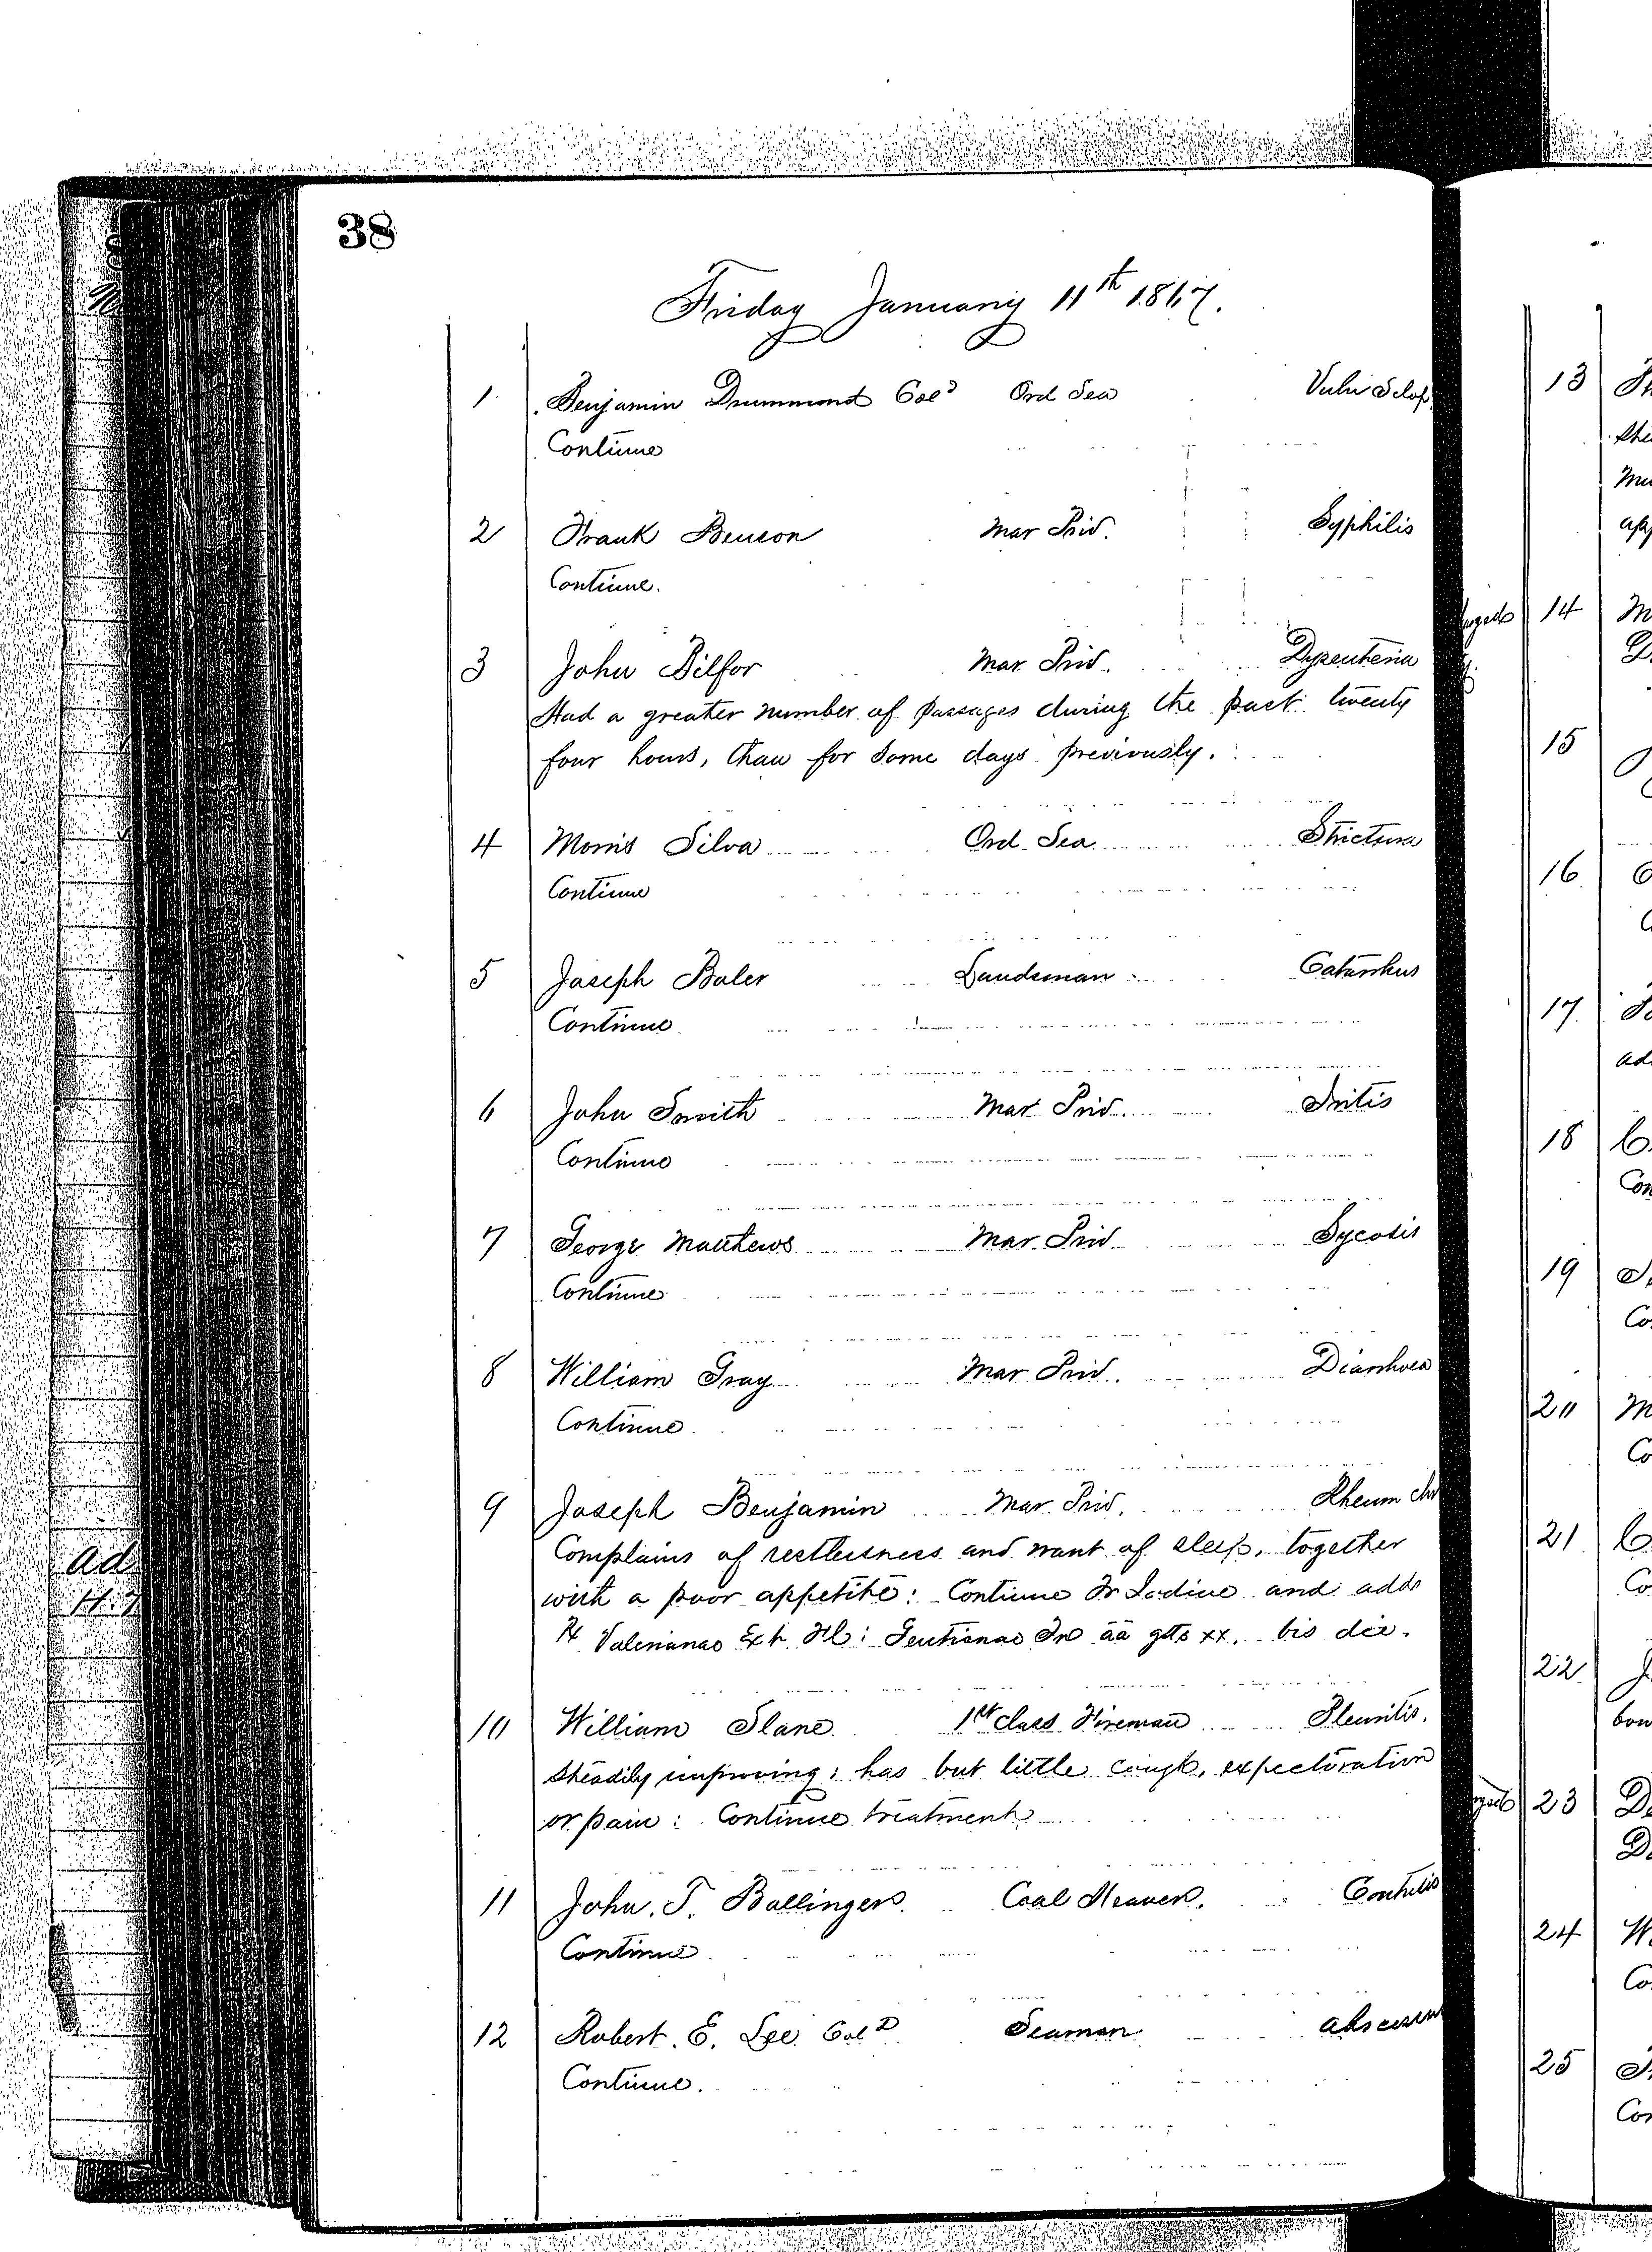 38
Friday January 11th 1867.
1 Benjamin Drummond Cold Ord Sea Vuln Sclop
Continue
2 Frank Benson Mar Priv. Syphilis
Continue.
3 John Pilfor Mar Priv. Dysenteria
Had a greater number of passages during the past twenty
four hours, than for some days previously.
4 Morris Silva Ord Sea Strictura
Continue
5 Joseph Baler Landsman Catarrhus
Continue
6 John Smith Mar Priv. Iritis
Continue
7 George Matthews Mar Priv Sycosis
Continue
8 William Gray Mar Priv. Diarrhoea
Continue
9 Joseph Benjamin Mar Priv. Rheum chr
Complains of restlessness and want of sleep, together
with a poor appetite: Continue Tr Iodine and add
℞ Valerianae Ext Fl: Gentianae Tr āā gtts xx. bis die.
10 William Slane 1st class Fireman Pleuritis.
Steadily improving: has but little cough, expectoration
or pain: Continue treatment
11 John. T. Ballinger. Coal Heaver.
Continue
12 Robert. E. Lee Cold Seaman Abscessus
Continue.
13
14
15
16
17
18
19
20
21
22
23
24
25